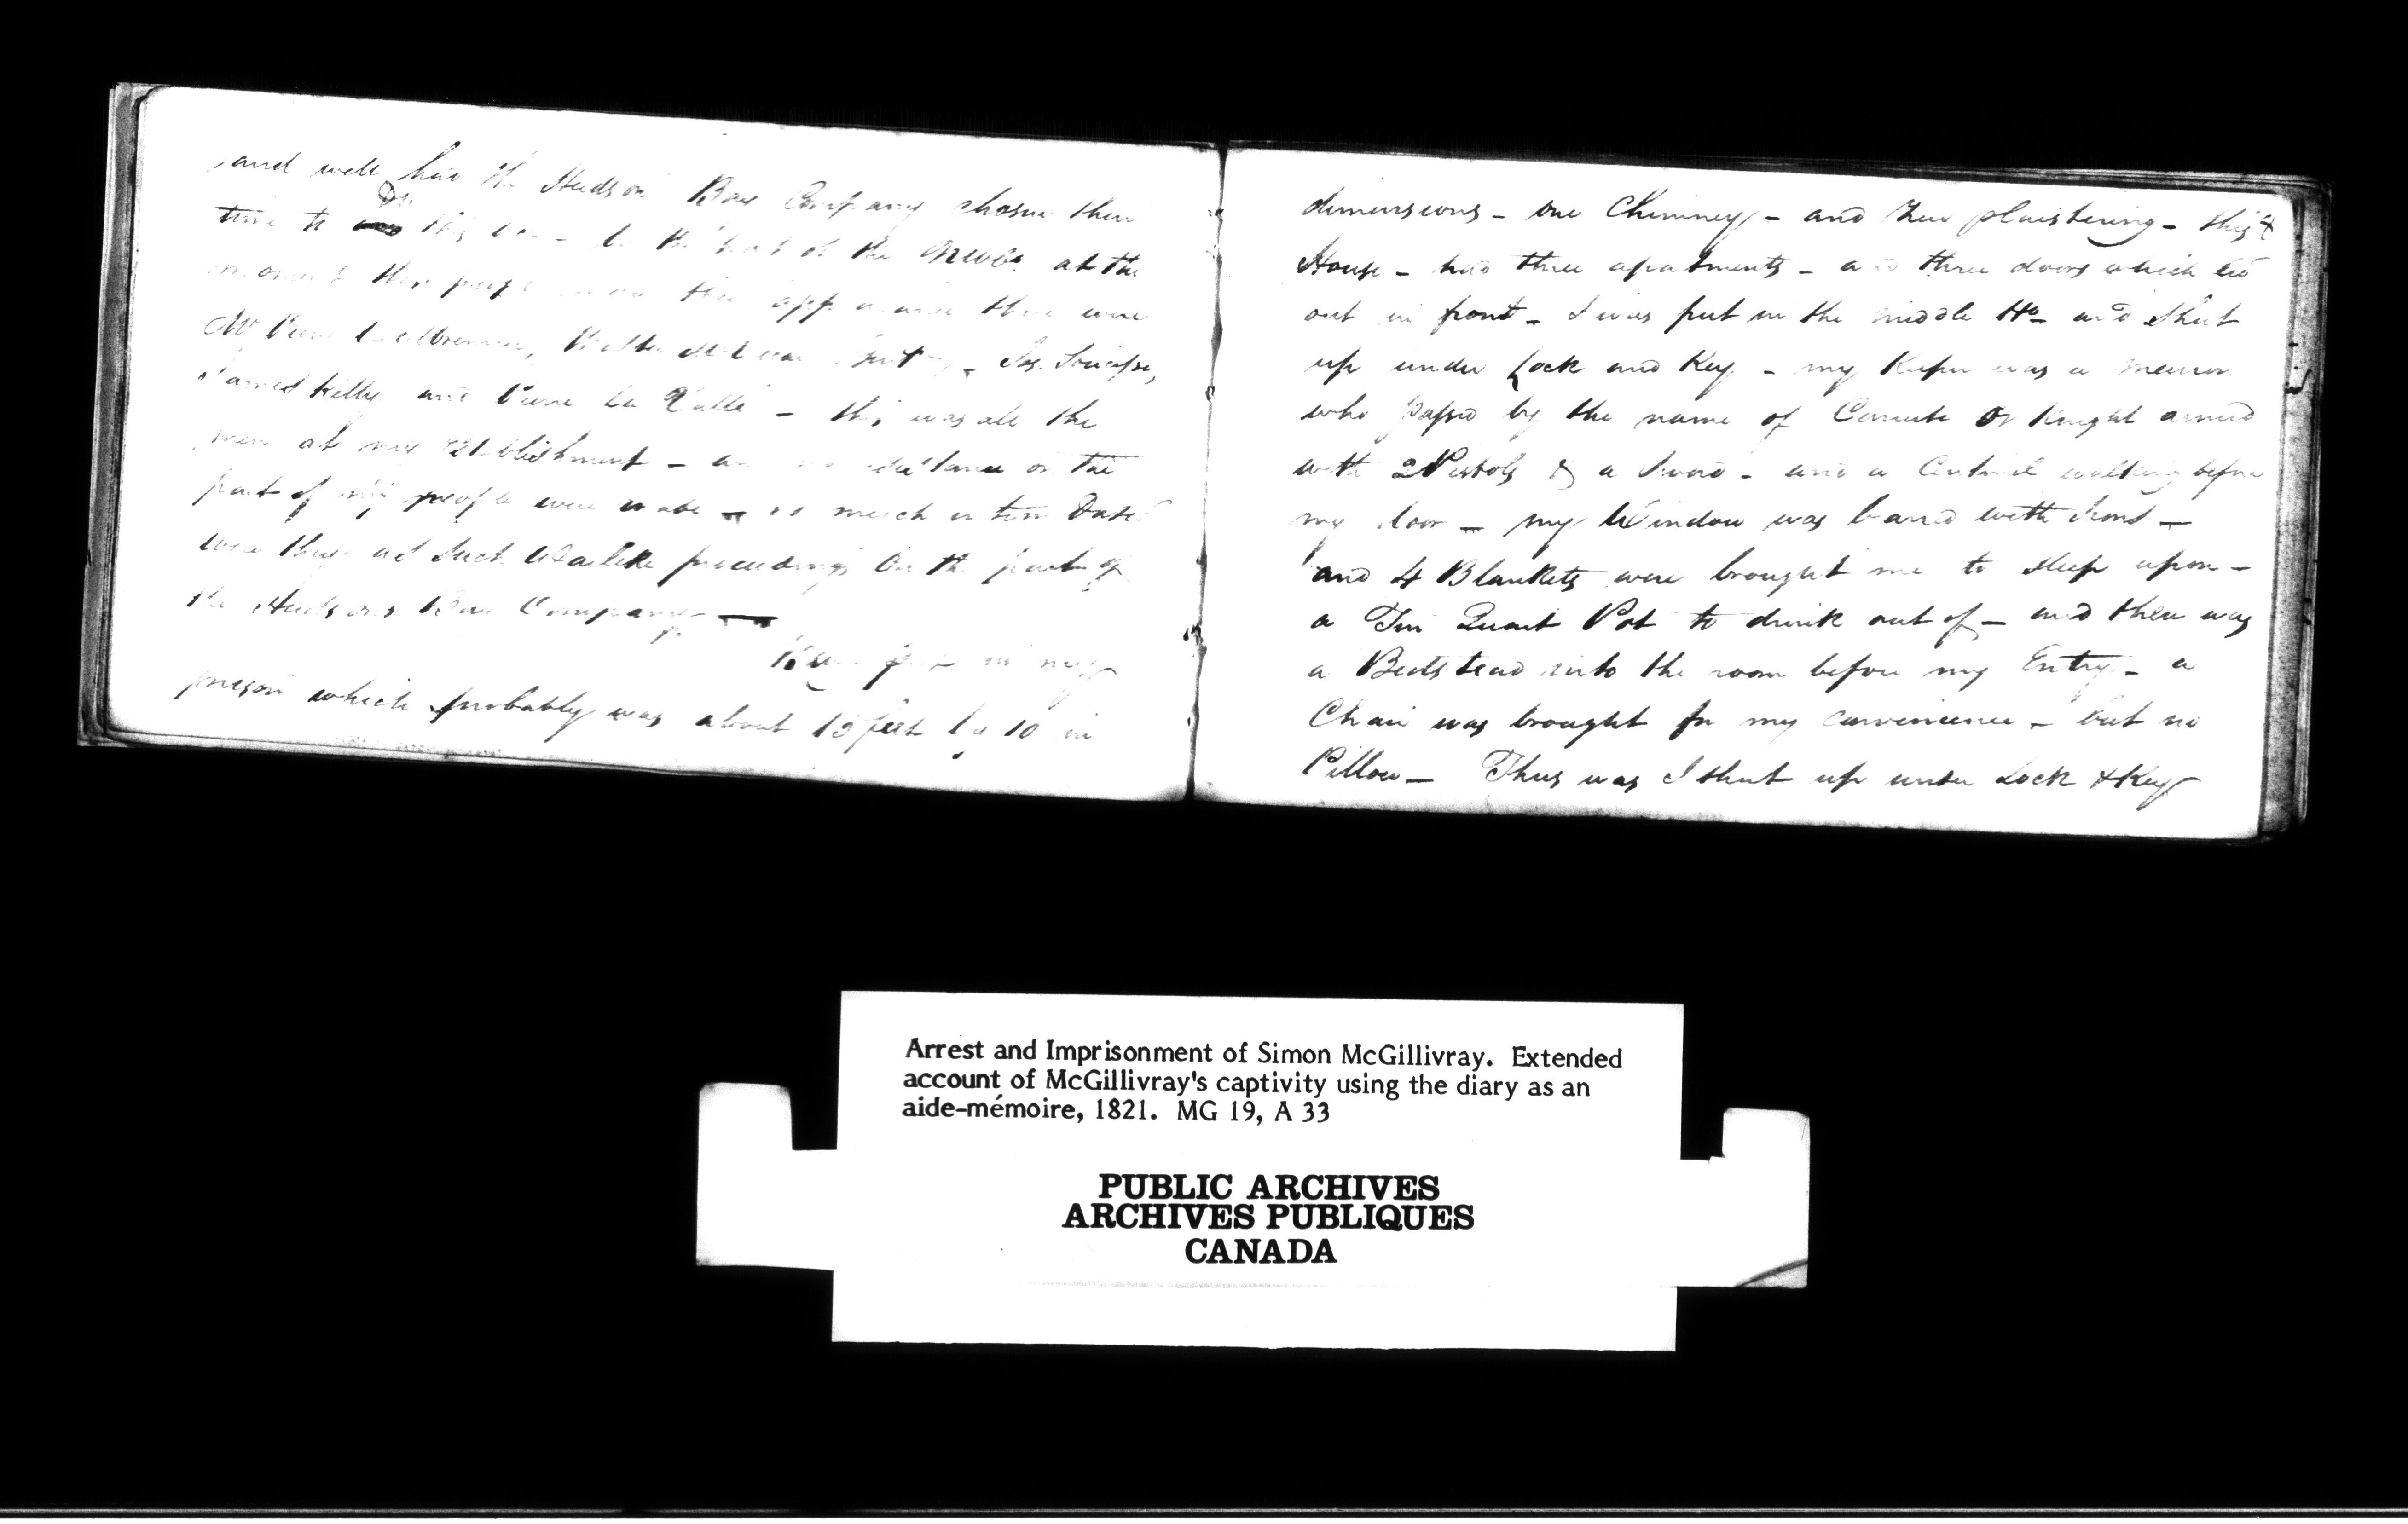 and well had the Hudson Bay Company chosen their
time to Do this
the NWCo. at the
moment their people
Mr
James Kelly and Pierre La Vallé – this was all the
men at my establishment – on the
part of my people were made – so much
were they at such Warlike proceedings on the part of
the Hudsons Bay Company —
in my
prison which probably was about 13 feet by 10 in
dimensions – one Chimney – and new plaistering – this
House – had three apartments – and three doors which led
out in front – I was put in the middle Ho and Shut
up under Lock and Key – my Keeper was a
who passed by the name of or Knight armed
with 2 Pistols & a Sword – and a Centinel walking before
my door – my Window was barred with Irons —
and 4 Blankets were brought me to sleep upon –
a Tin Quart Pot to drink out of – and there was
a Bedstead into the room before my Entry – a
Chair was brought for my convenience – but no
Pillow – Thus was I shut up under Lock & Key
Arrest and Imprisonment of Simon McGillivray. Extended
account of McGillivray's captivity using the diary as an
aide-mémoire, 1821. MG 19, A 33
PUBLIC ARCHIVES
ARCHIVES PUBLIQUES
CANADA